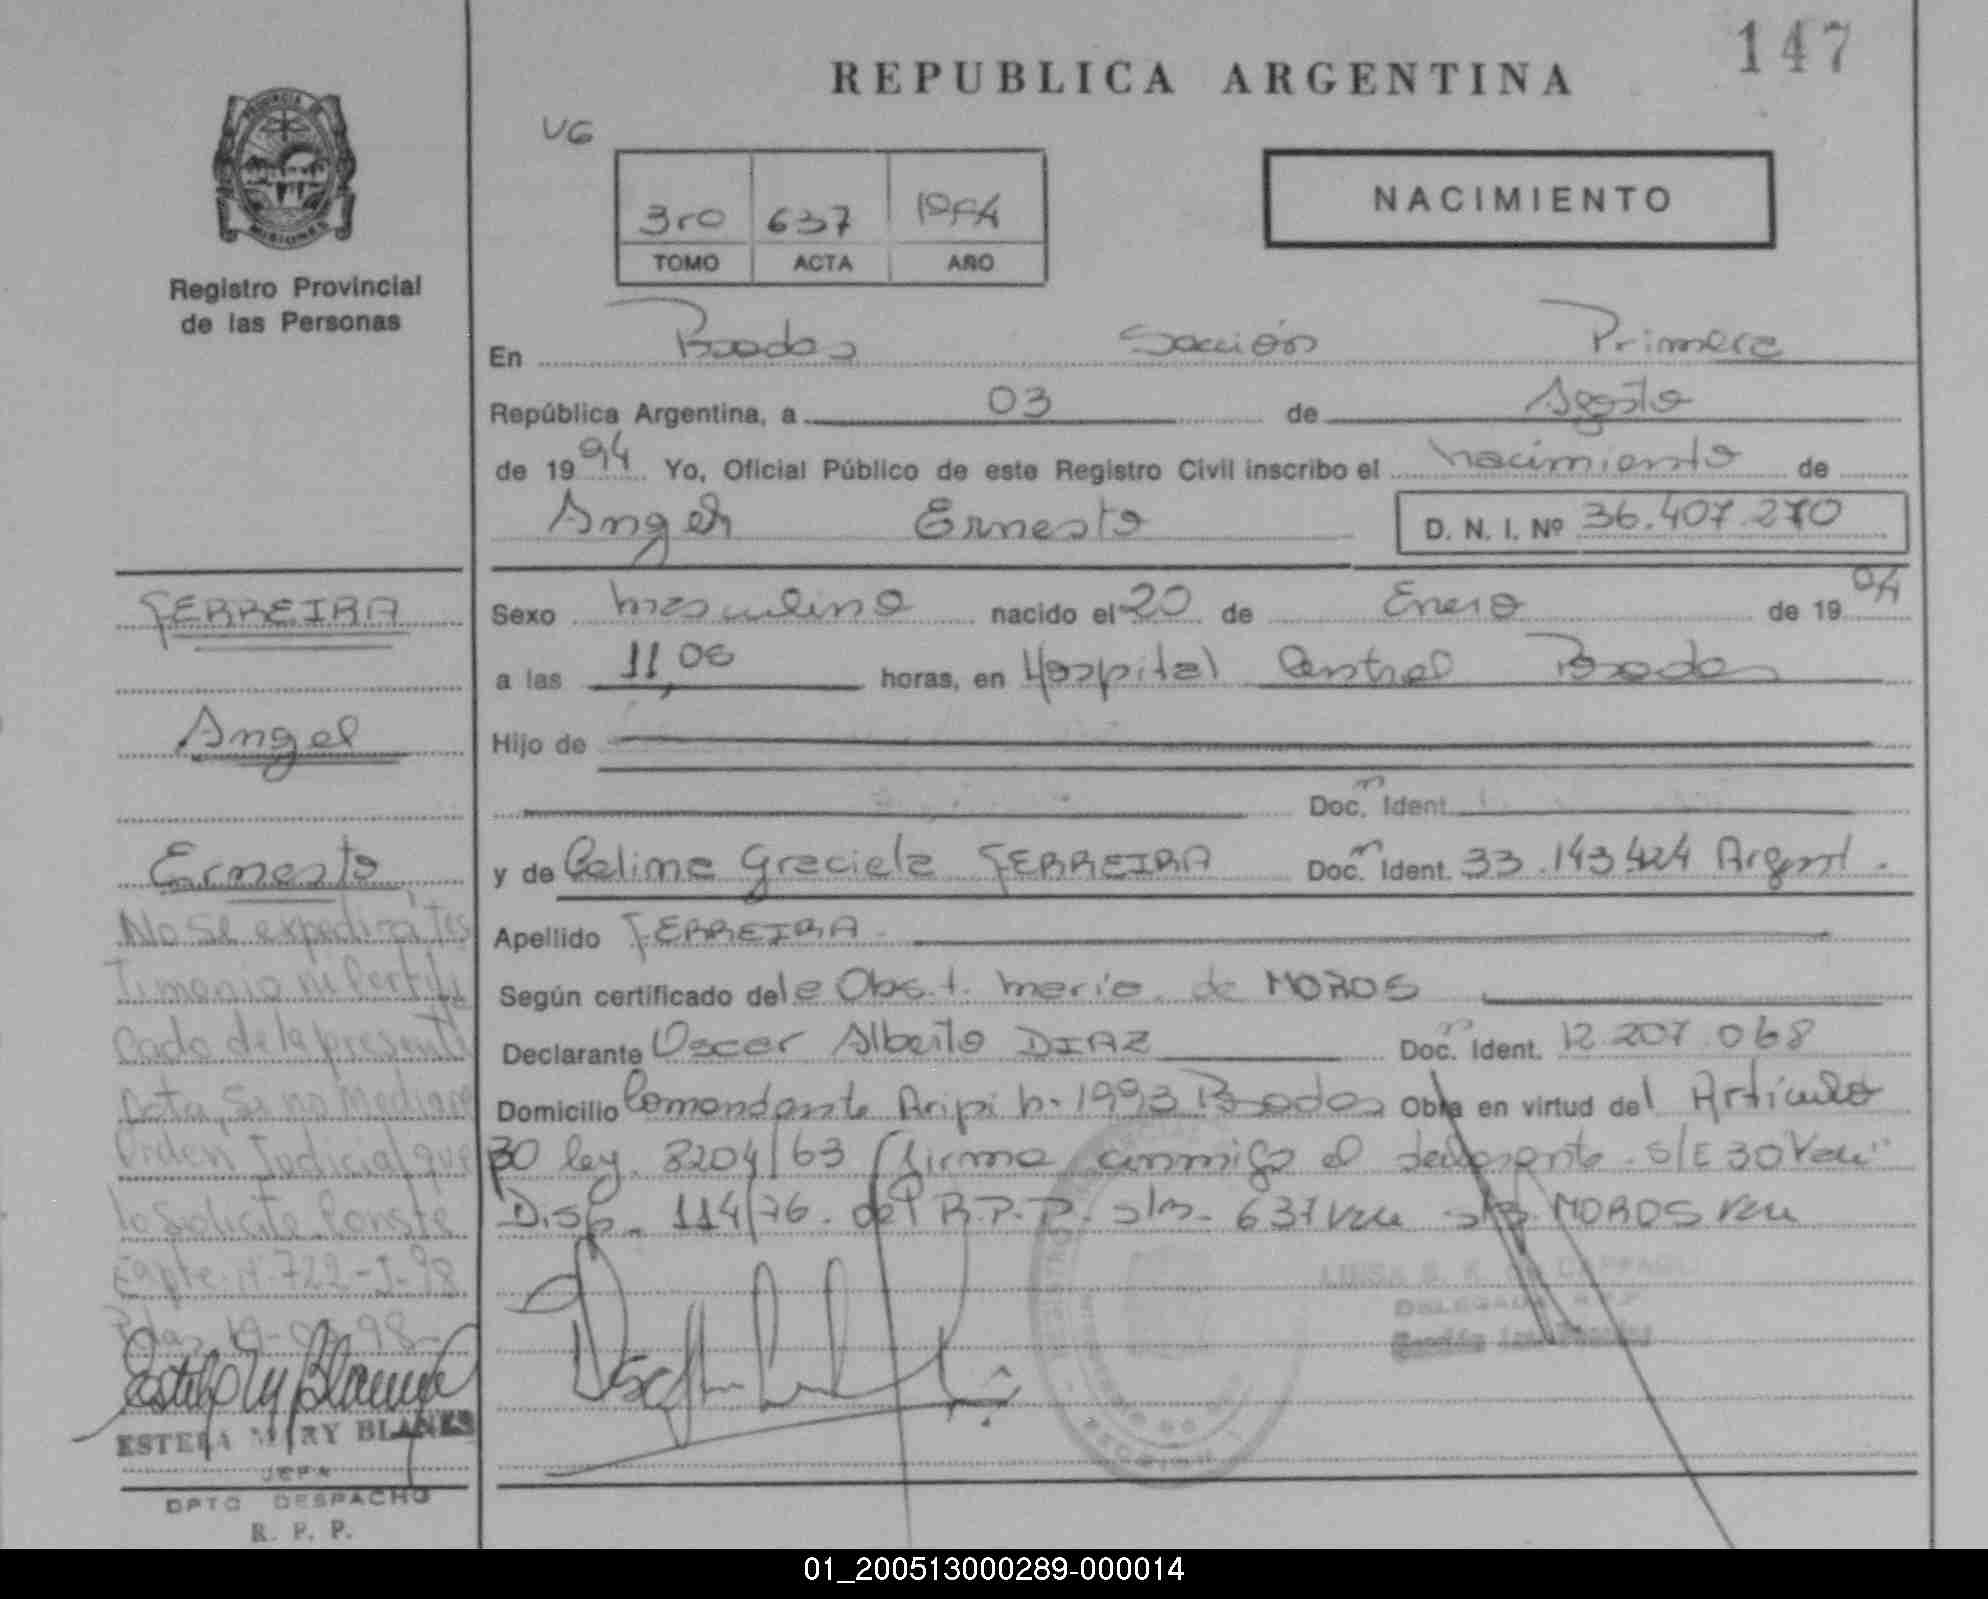 147
REPUBLICA ARGENTINA
VG
3ro 637 1994
TOMO ACTA AÑO
NACIMIENTO
MISIONES
Registro Provincial
de las Personas
En Posadas Sección Primera
República Argentina, a 03 de Agosto
de 1994 Yo, Oficial Público de este Registro Civil inscribo el nacimiento de
Angel Ernesto D. N. I. Nº 36.407.270
FERREIRA
Angel
Ernesto
Sexo masculino nacido el 20 de Enero de 1994
a las 11,05 horas, en Hospital Central Posadas
Hijo de
Doc. Ident.
y de Celima Graciela FERREIRA Doc. Ident. 33.143.424 Argent.
Apellido FERREIRA
Según certificado de la Obst. Maria de MOROS
Declarante Oscar Alberto DIAZ Doc. Ident. 12.207.068
Domicilio Comandante Aripi h. 1993 Posadas Obra en virtud del Artículo
30 ley. 8204/63 firma conmigo el declarante. S/E 30 Vale
Disp. 114/76. del R.P.P. s/r. 637 vale s/r. MOROS vale
No se expedirá tes
timonio ni Certifi
cado de la presente
Acta, si no mediare
Orden Judicial que
lo solicite. Conste
Expte. Nº 722-I-98
Pdas, 98-
ESTELA MARY BLANES
JEFA
DPTO DESPACHO
R. P. P.
DELEGADA R.P.P.
01_200513000289-000014